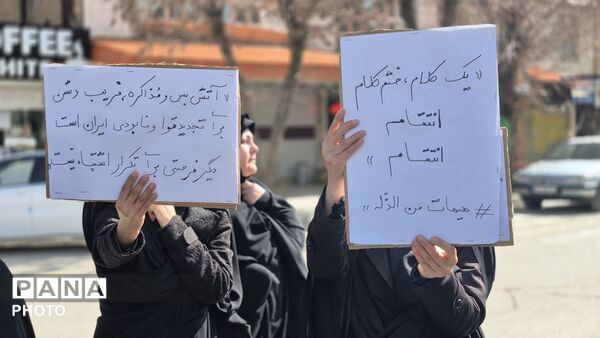 COFFEE
« آتش بس و مذاکره، فریب دشمن
برای تجدید قوا و نابودی ایران است
دیگر فرصتی برای تکرار اشتباه نیست
« یک کلام، ختم کلام
انتقام
انتقام »
# هیهات من الذله »
PANA
PHOTO